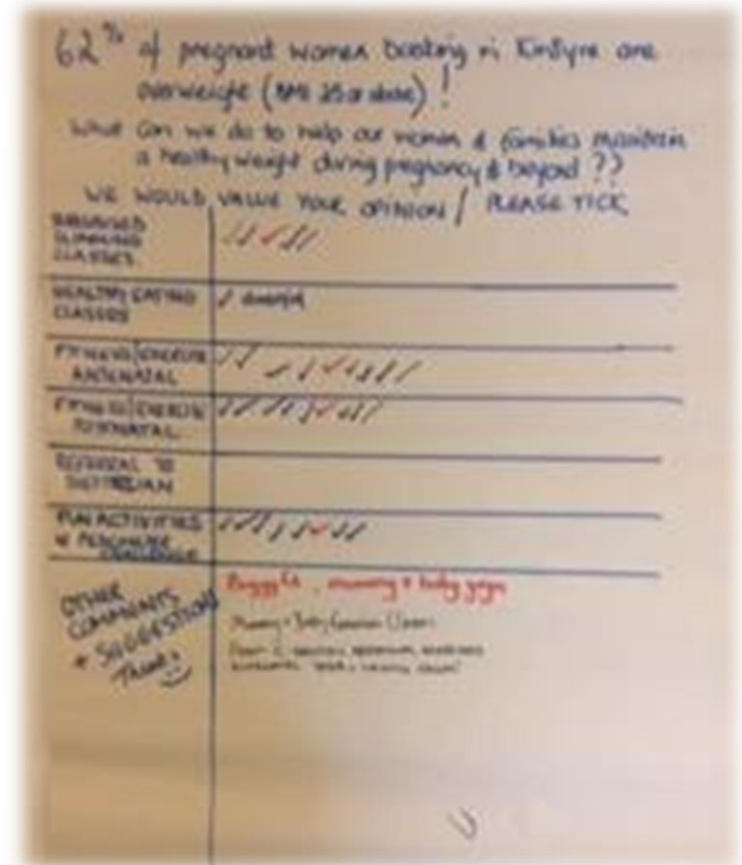 62% of pregnant women booking in Kintyre are
overweight (BMI 25 or above)!
What can we do to help our women & families maintain
a healthy weight during pregnancy & beyond ??
WE WOULD VALUE YOUR OPINION / PLEASE TICK
SLIMMING
CLASSES
HEALTHY EATING
CLASSES
FITNESS/EXERCISE
ANTENATAL
FITNESS/EXERCISE
POSTNATAL
REFERRAL TO
DIETITIAN
FUN ACTIVITIES
PEDOMETER
CHALLENGE
OTHER
COMMENTS
+ SUGGESTIONS
Thanks
Buggy fit, mummy + baby yoga
Mummy + Baby Classes